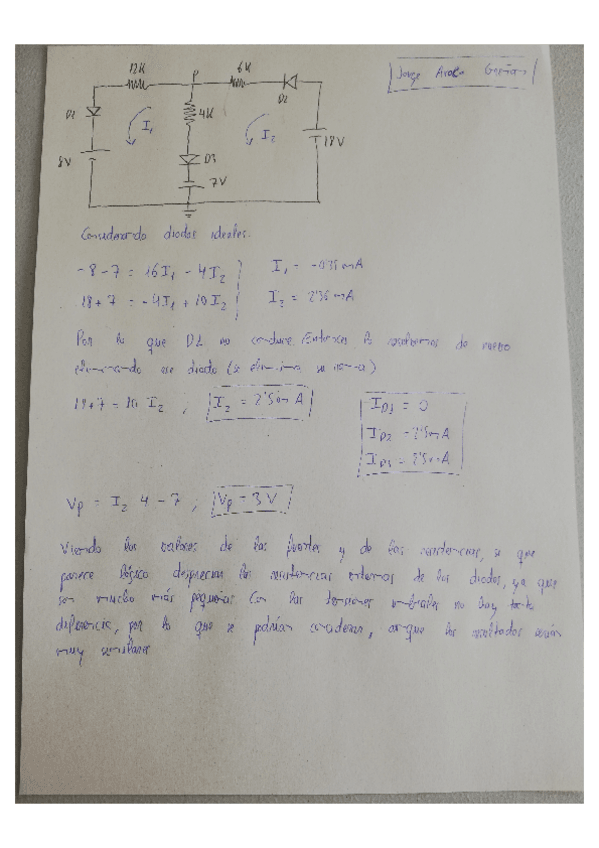 12K P 6K
Jorge
D1 4K D2
I₁ I₂
8V D3 18V
7V
Considerando diodos ideales.
-8-7 = 16I₁ - 4I₂ I₁ = -0'35mA
18+7 = -4I₁ + 10I₂ I₂ = 2'36mA
Por lo que D1 no conduce. Entonces lo resolvemos de nuevo
eliminando ese diodo (se elimina su rama)
18+7 = 10 I₂ ; I₂ = 2'50mA
I_D1 = 0
I_D2 = 2'5mA
I_D3 = 2'5mA
Vp = I₂ 4 - 7 ; Vp = 3V
Viendo los valores de las fuentes y de las resistencias, si que
parece lógico despreciar las resistencias internas de los diodos, ya que
son mucho más pequeñas. Con las tensiones umbrales no hay tanta
diferencia, por lo que se podrían considerar, aunque los resultados serán
muy similares